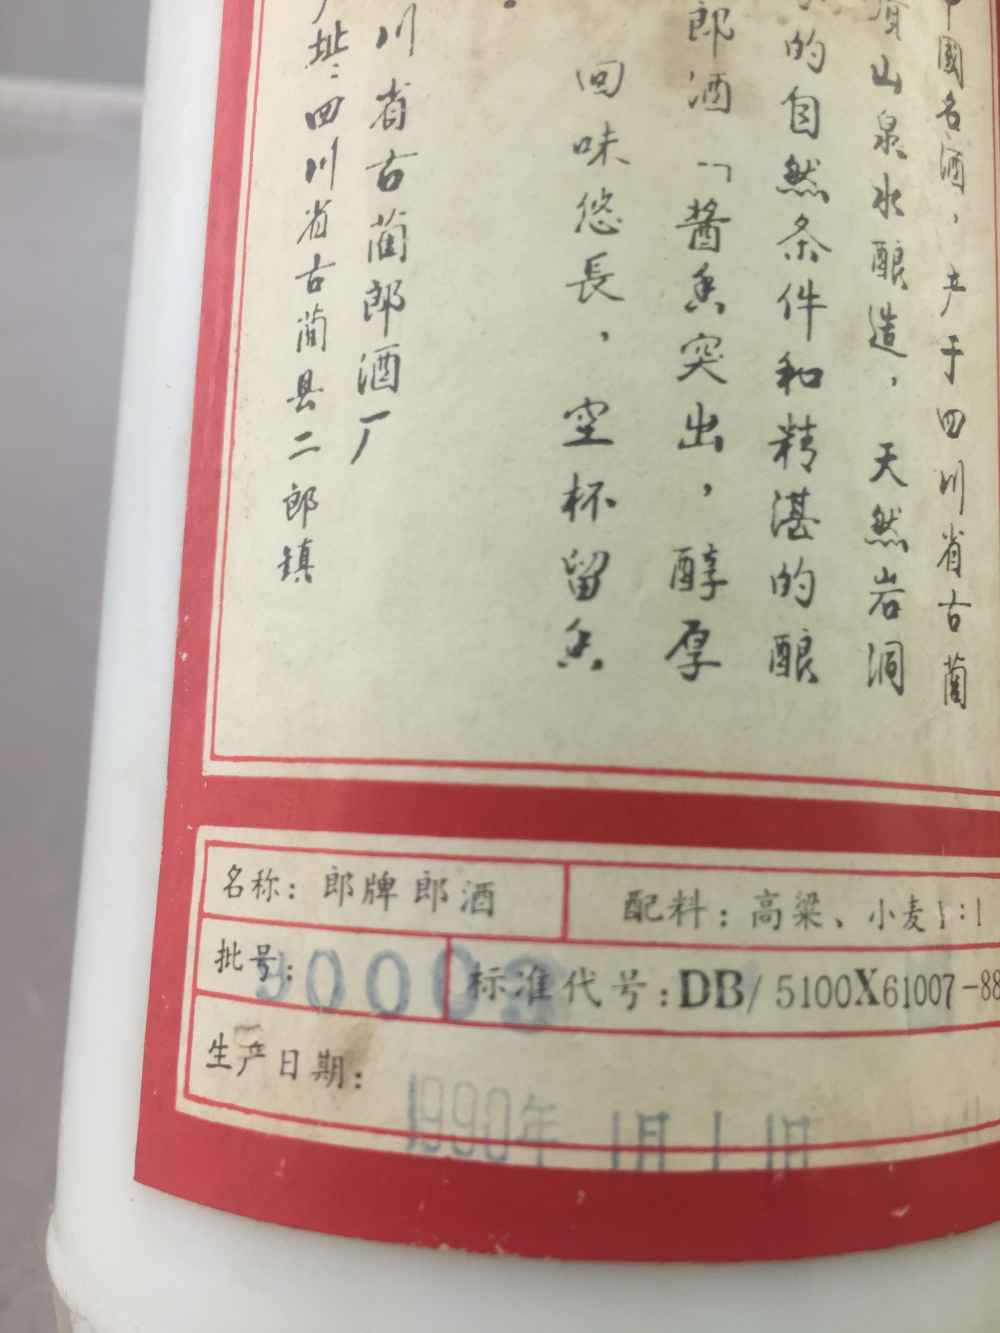 中國名酒，产于四川省古蔺
山泉水酿造，天然岩洞
的自然条件和精湛的酿
郎酒「酱香突出，醇厚
回味悠長，空杯留香
。
川省古蔺郎酒厂
址：四川省古蔺县二郎镇
名称：郎牌郎酒
配料：高粱、小麦1:1
批号：
标准代号：DB/5100X61007-88
生产日期：
1990年1月11日